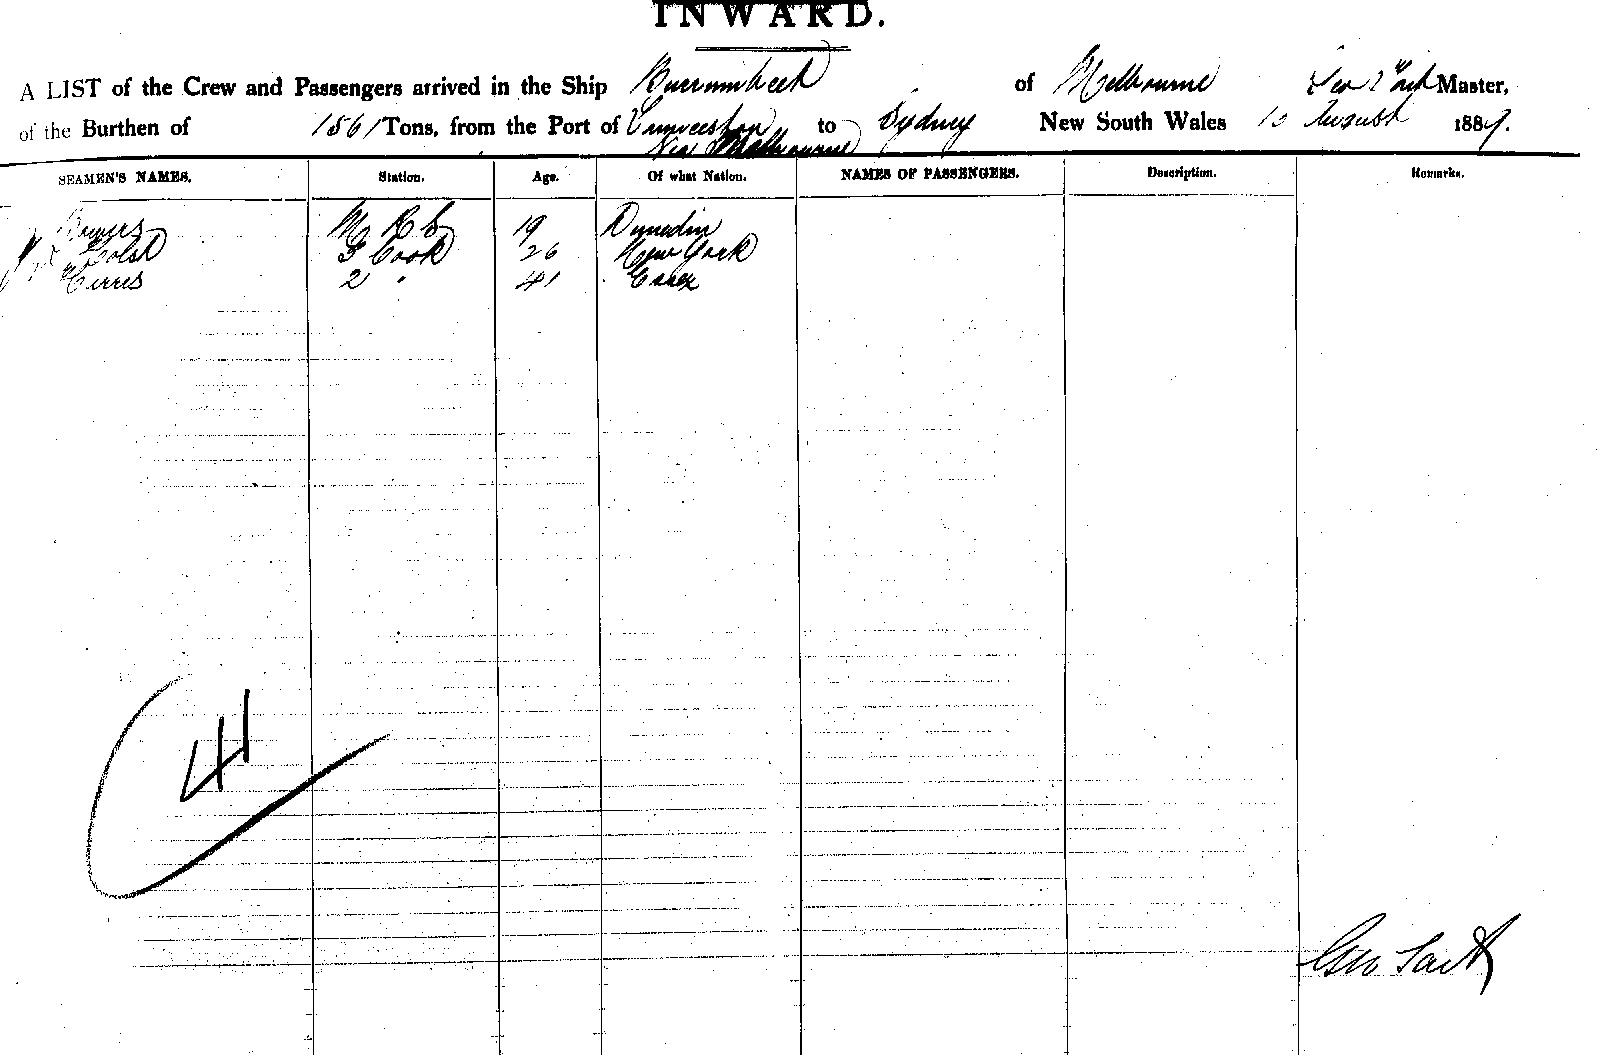 INWARD.
A LIST of the Crew and Passengers arrived in the Ship Burrumbeet of Melbourne Master,
of the Burthen of Tons, from the Port of Launceston to Sydney New South Wales 10 August 1889.
Via Melbourne
SEAMEN'S NAMES. Station. Age. Of what Nation. NAMES OF PASSENGERS. Description. Remarks.
19 Dunedin
3 Cook 26 New York
2 " 41 Essex